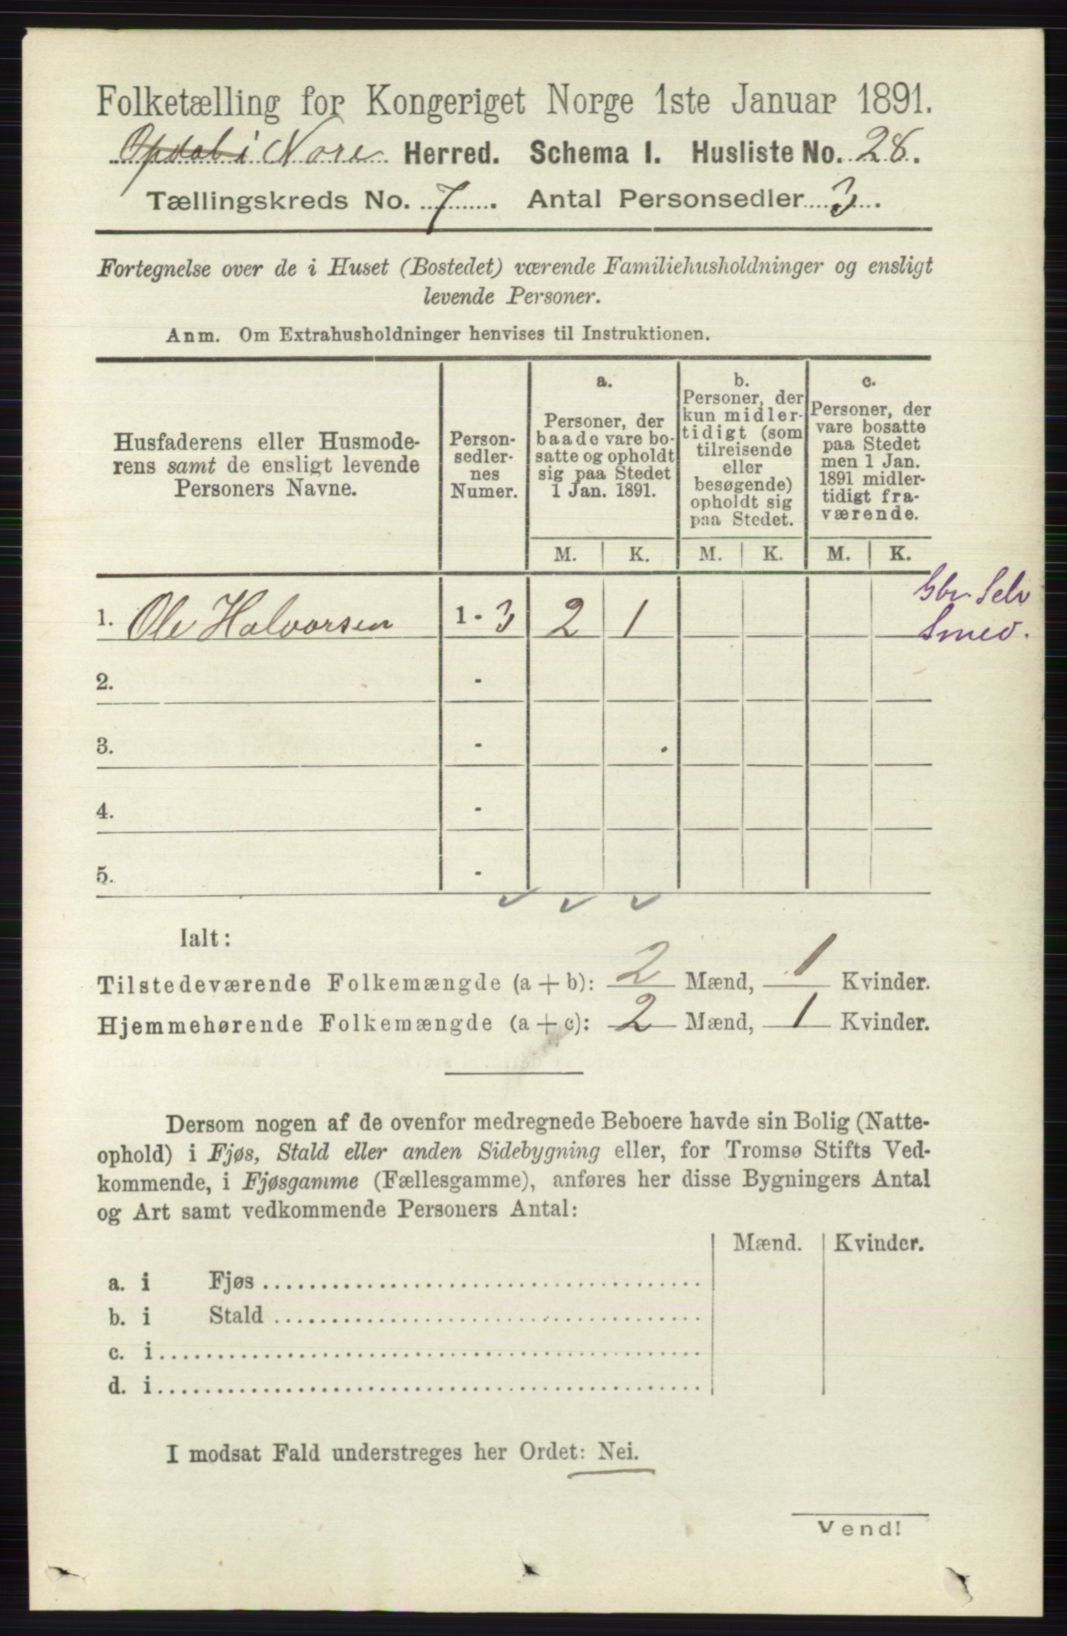 Folketælling for Kongeriget Norge 1ste Januar 1891.
Opdal i Nore Herred. Schema I. Husliste No. 28.
Tællingskreds No. 7. Antal Personsedler 3.
Fortegnelse over de i Huset (Bostedet) værende Familiehusholdninger og ensligt
levende Personer.
Anm. Om Extrahusholdninger henvises til Instruktionen.
Husfaderens eller Husmode-
rens samt de ensligt levende
Personers Navne.
Person-
sedler-
nes
Numer.
a.
Personer, der
baade vare bo-
satte og opholdt
sig paa Stedet
1 Jan. 1891.
b.
Personer, der
kun midler-
tidigt (som
tilreisende
eller
besøgende)
opholdt sig
paa Stedet.
c.
Personer, der
vare bosatte
paa Stedet
men 1 Jan.
1891 midler-
tidigt fra-
værende.
M. K. M. K. M. K.
1. Ole Halvorsen 1 - 3 2 1
Gbr Selv
Smed.
2. -
3. -
4. -
5. -
Ialt:
Tilstedeværende Folkemængde (a + b): 2 Mænd, 1 Kvinder.
Hjemmehørende Folkemængde (a + c): 2 Mænd, 1 Kvinder.
Dersom nogen af de ovenfor medregnede Beboere havde sin Bolig (Natte-
ophold) i Fjøs, Stald eller anden Sidebygning eller, for Tromsø Stifts Ved-
kommende, i Fjøsgamme (Fællesgamme), anføres her disse Bygningers Antal
og Art samt vedkommende Personers Antal:
Mænd. Kvinder.
a. i Fjøs
b. i Stald
c. i
d. i
I modsat Fald understreges her Ordet: Nei.
Vend!